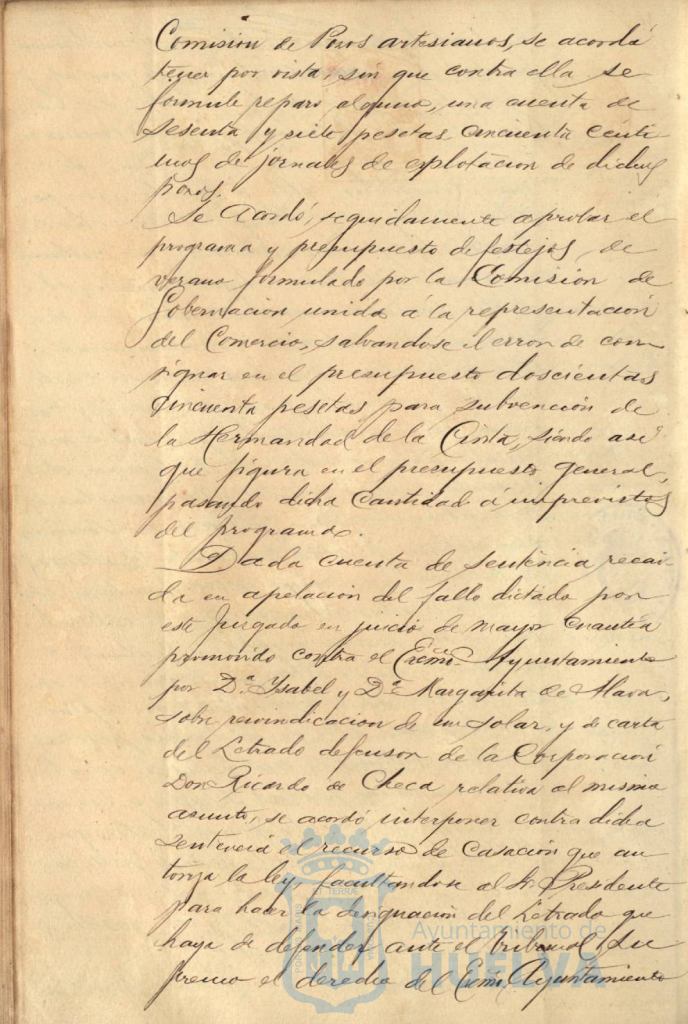 Comisión de Pozos artesianos, se acordó
tener por vista, sin que contra ella se
formule reparo alguno, una cuenta de
sesenta y siete pesetas cincuenta cénti
mos de jornales de esplotacion de dichos
pozos.
Se acordó, seguidamente aprobar el
programa y presupuesto de festejos de
verano formulado por la Comisión de
Gobernacion unida á la representación
del Comercio, salvandose el error de con
signar en el presupuesto doscientas
cincuenta pesetas para subvención de
la Hermandad de la Cinta, siendo asi
que figura en el presupuesto general,
pasando dicha cantidad á imprevistos
del programa.
Dada cuenta de sentencia recai
da en apelación del fallo dictado por
este Juzgado en juicio de mayor cuantía
promovido contra el Excmo. Ayuntamiento
por D.ª Ysabel y D.ª Margarita de Alava,
sobre reivindicacion de un solar, y de carta
del Letrado defensor de la Corporación
Don Ricardo de Checa relativa al mismo
asunto, se acordó interponer contra dicha
sentencia el recurso de casación que au
toriza la ley, facultandose al Sr. Presidente
para hacer la designación del Letrado que
haya de defender ante el tribunal Su
premo el derecho del Excmo. Ayuntamiento
Ayuntamiento de
HUELVA